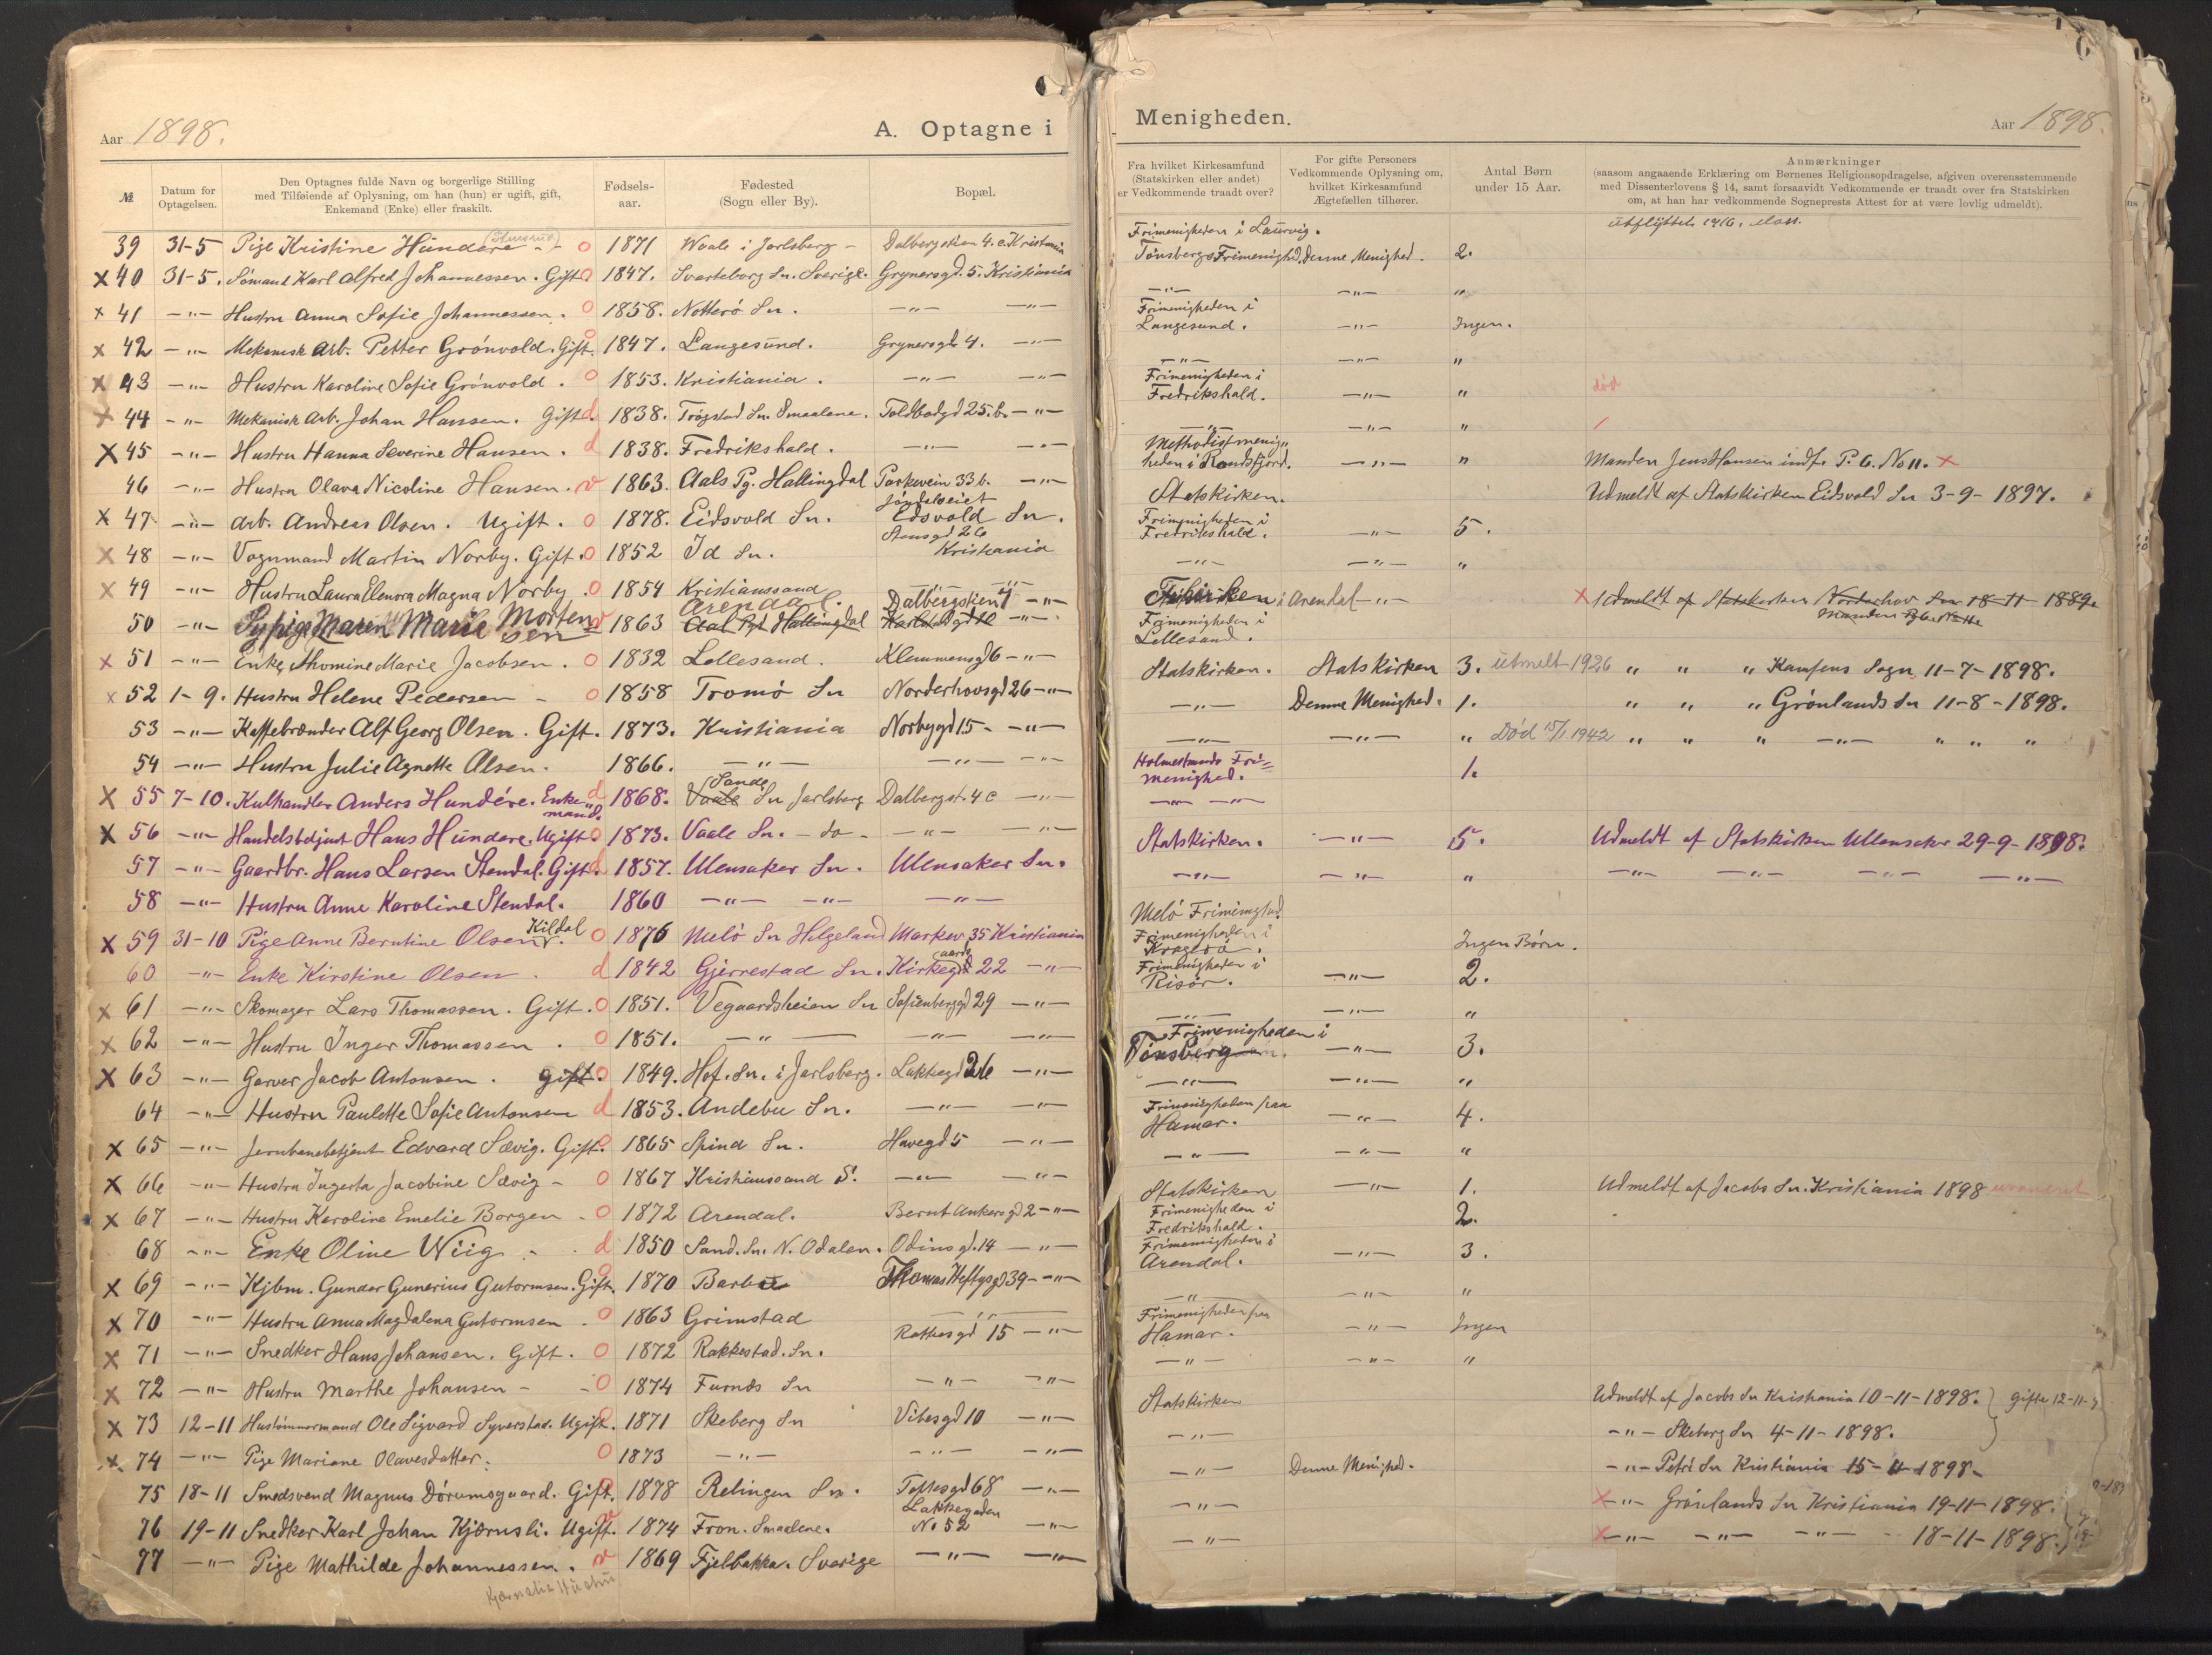 Aar 1898.
A. Optagne i
№
Datum for Optagelsen.
Den Optagnes fulde Navn og borgerlige Stilling
med Tilføiende af Oplysning, om han (hun) er ugift, gift,
Enkemand (Enke) eller fraskilt.
Fødsels-
aar.
Fødested
(Sogn eller By).
Bopæl.
39 31-5 Pige Kristine Hundere - o 1871 Waale i Jarlsberg - Dalbergstien 4. c. Kristiania
x 40 31-5. Sømand Karl Alfred Johannessen. Gift. o 1847. Svarteborg Sn. Sverige. Grynersgd. 5. Kristiania
x 41 -"- Hustru Anna Sofie Johannessen. o 1858. Nøtterö Sn. -"- -"-
x 42 -"- Mekanisk Arb. Petter Grönvold. Gift. o 1847. Langesund. Grynersgd. 4. -"-
x 43 -"- Hustru Karoline Sofie Grönvold. o 1853. Kristiania. -"- -"-
x 44 -"- Mekanisk Arb. Johan Hansen. Gift. d 1838. Trögstad Sn. Smaalene. Toldbodgd 25. b. -"-
x 45 -"- Hustru Hanna Severine Hansen. d 1838. Fredrikshald. -"- -"-
46 -"- Hustru Olava Nicoline Hansen. v 1863. Aals Pg. Hallingdal Parkvein 33 b. -"-
x 47 -"- Arb. Andreas Olsen. Ugift. o 1878. Eidsvold Sn. Jöndalveiet Edsvold Sn.
x 48 -"- Vognmand Martin Norby. Gift. o 1852 Id Sn. Kristiania
x 49 -"- Hustru Laura Elenora Magna Norby. o 1854 Kristianssand -"- -"-
50 -"- Sypige Maren Marie Mortensen v 1863 Arendal. Aal Pgd Hallingdal Dalbergstien 4 -"-
x 51 -"- Enke Thomine Marie Jacobsen. o 1832 Lellesand. Klemmensgd 6 -"-
x 52 1-9. Hustru Helene Pedersen - o 1858 Tromö Sn Norderhovsgd 26 -"-
53 -"- Kaffebrænder Alf Georg Olsen. Gift. 1873. Kristiania Norbygd 15 - -"-
54 -"- Hustru Julie Agnette Olsen. 1866. -"- -"- -"-
x 55 7-10. Kulhandler Anders Hundére. Enkemand. d 1868. Vaale Sande Sn Jarlsberg Dalbergst. 4 c -"-
x 56 -"- Handelsbetjent Hans Hundere. Ugift. o 1873. Vaale Sn. - do - -"- -"-
57 -"- Gaardbr. Hans Larsen Stendal. Gift. d 1857. Ulensaker Sn. Ulensaker Sn.
58 -"- Hustru Anne Karoline Stendal. 1860 -"- -"- -"-
x 59 31-10 Pige Anne Berntine Olsen Kildal. o 1876 Melö Sn Helgeland Markev. 35 Kristiania
60 -"- Enke Kirstine Olsen. d 1842 Gjerrestad Sn. Kirkegd 22 -"-
x 61 -"- Skomager Lars Thomassen. Gift. o 1851. Vegaardsheien Sn Sofienberggd 29 -"-
x 62 -"- Hustru Inger Thomassen. o 1851. -"- -"- -"-
x 63 -"- Garver Jacob Antonsen. gift. o 1849. Hof. Sn. i Jarlsberg. Lakkegd 26 -"-
64 -"- Hustru Paulette Sofie Antonsen d 1853. Andebu Sn. -"- -"-
x 65 -"- Jernbanebetjent Edvard Sævig. Gift. o 1865 Spind Sn. Havegd 5 -"-
x 66 -"- Hustru Ingerta Jacobine Sævig - o 1867 Kristianssand S. -"- -"-
x 67 -"- Hustru Karoline Emelie Borgen. o 1872 Arendal. Bernt Ankersgd 2 -"-
68 -"- Enke Oline Wiig. d 1850 Sand. Sn. N. Odalen. Odinsgd. 14 -"-
x 69 -"- Kjbm. Gunder Gunerius Gutormsen. Gift. o 1870 Barbu Thomas Heftysgd 39 - -"-
x 70 -"- Hustru Anna Magdalena Gutormsen. o 1863 Grimstad -"-
x 71 -"- Snedker Hans Johansen. Gift. o 1872 Rakkestad. Sn. Rathesgd 15 -"-
x 72 -"- Hustru Marthe Johansen - o 1874 Furnds Sn -"- -"-
x 73 12-11 Hustømmermand Ole Sigvard Syverstad. Ugift. o 1871 Skeberg Sn Vibesgd 10 -"-
x 74 -"- Pige Mariane Olavesdatter. o 1873 -"- -"- -"-
75 18-11 Smedsvend Magnus Dörumsgaard. Gift. 1878 Relingen Sn. Toftesgd 68 -"-
76 19-11 Snedker Karl Johan Kjærnsli. Ugift. v 1874 Fron. Smaalene. Lakkegaden No 52 -"-
77 -"- Pige Mathilde Johannessen. v 1869 Fjelbakka. Sverige -"- -"-
Menigheden.
Aar 1898.
Fra hvilket Kirkesamfund
(Statskirken eller andet)
er Vedkommende traadt over?
For gifte Personers
Vedkommende Oplysning om,
hvilket Kirkesamfund
Ægtefællen tilhører.
Antal Børn
under 15 Aar.
Anmærkninger
(saasom angaaende Erklæring om Børnenes Religionsopdragelse, afgiven overensstemmende
med Dissenterlovens § 14, samt forsaavidt Vedkommende er traadt over fra Statskirken
om, at han har vedkommende Sogneprests Attest for at være lovlig udmeldt).
Frimenigheden i Laurvig.
Tönsbergs Frimenighed. Denne Menighed. 2.
-"- -"- "
Frimenigheden i
Langesund. -"- Ingen.
-"- -"- "
Frimenigheden i
Fredrikshald. -"- " död
-"- -"- "
Methodistmenig-
heden i Randsfjord. -"- " Manden Jens Hansen indf. P. 6. No 11. x
Statskirken. Udmeldt af Statskirken Eidsvold Sn 3-9-1897.
Frimenigheden i
Fredrikshald. -"- 5.
-"- -"- "
i Arendal -"- x Udmeldt af Statskirken Norderhov Sn 18-11-1889.
Frimenigheden i
Lellesand.
Statskirken. Statskirken 3. utmelt 1926 " " " Kampens Sogn 11-7-1898.
-"- Denne Menighed. 1. " " " Grönlands Sn 11-8-1898.
-"- -"- " Död 15/1 1942 " " " -"- " " "
Holmestrands Fri-
menighed. 1.
-"- -"-
Statskirken. -"- 5. Udmeldt af Statskirken Ullensaker 29-9-1898.
-"- -"- " -"- -"- -"- -"-
Melö Frimenighed.
Frimenigheden i
Kragerö. Ingen Børn.
Frimenigheden i
Risör. -"- 2.
-"- -"- "
Frimenigheden i
Tönsberg -"- 3.
-"- -"- "
Frimenigheden paa
Hamar. -"- 4.
-"- -"- "
Statskirken -"- 1. Udmeldt af Jacobs Sn. Kristiania 1898
Frimenigheden i
Fredrikshald. 2.
Frimenigheden i
Arendal. -"- 3.
-"- -"- "
Frimenigheden paa
Hamar. -"- Ingen
-"- -"- "
Statskirken Udmeldt af Jacobs Sn Kristiania 10-11-1898. gifte 12-11-
-"- -"- Skeberg Sn 4-11-1898.
-"- Denne Menighed. -"- Petri Sn Kristiania 15-11-1898-
-"- x -"- Grönlands Sn Kristiania 19-11-1898.
-"- x -"- -"- -"- 18-11-1898.